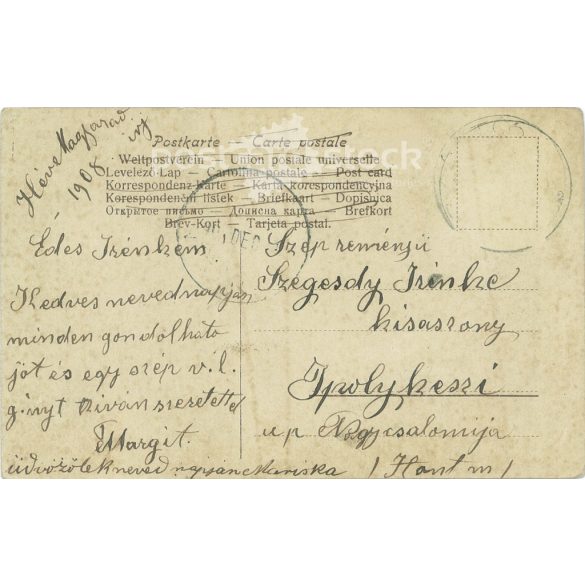 1908
Postkarte — Carte postale
Weltpostverein — Union postale universelle
Levelező-Lap — Cartolina postale — Post card
Korrespondenz-Karte — Karta korespondencyjna
Korespondenční lístek — Briefkaart — Dopisnica
Открытое письмо — Дописна карта — Brefkort
Brev-Kort — Tarjeta postal.
DEC
Édes Irénkém
Kedves nevednapján
minden gondolható
jót és egy szép v.l.
gényt kiván szeretettel
Margit.
üdvözöllek neved napján Mariska
Szép reményü
Szegesdy Irénke
kisaszony
Ipolykeszi
u.p. Nagycsalomija
/Hont m/